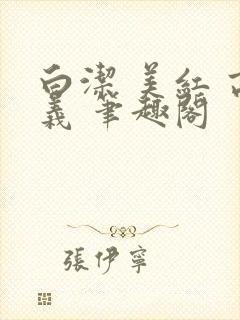 白潔 美紅 高
義 筆趣閣
張伊寧